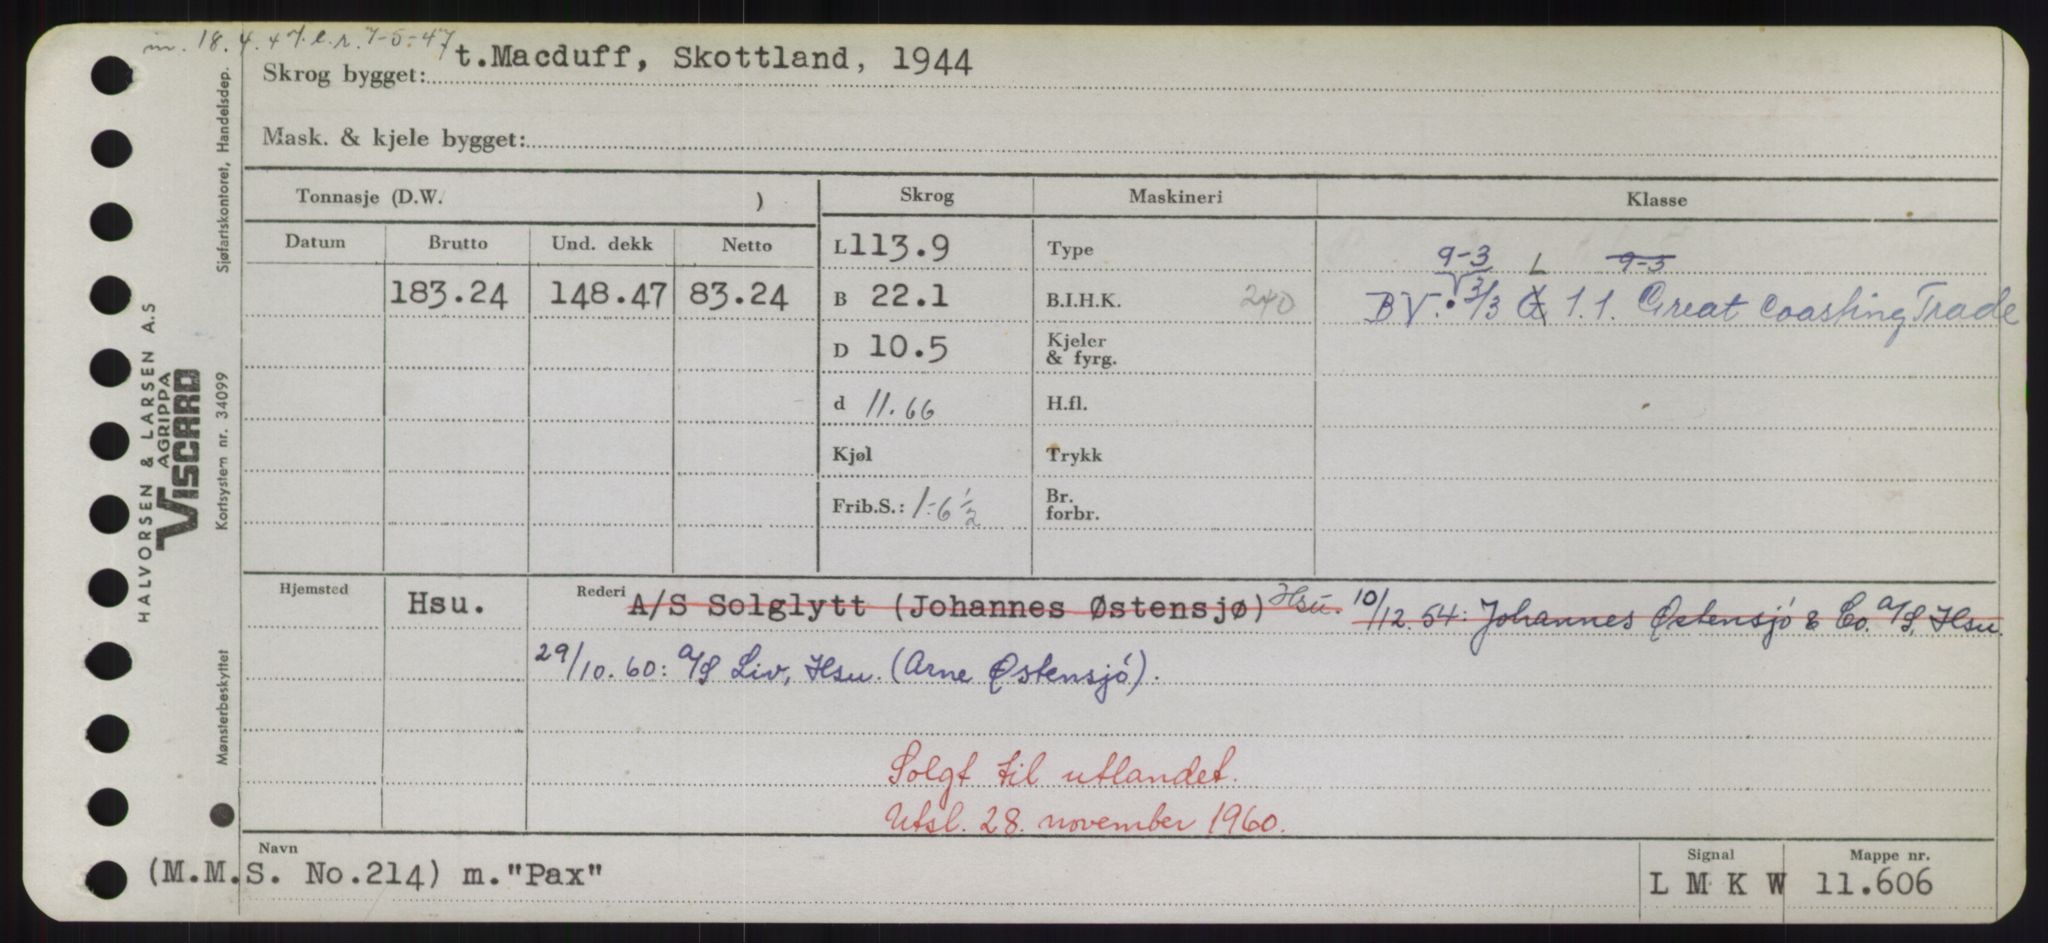 m. 18.4.47. l.r. 7-5-47
Skrog bygget: t.Macduff, Skottland, 1944
Mask. & kjele bygget:
Tonnasje (D.W. )
Skrog
Maskineri
Klasse
Datum Brutto Und. dekk Netto
183.24 148.47 83.24
L 113.9
B 22.1
D 10.5
d 11.66
Kjøl
Frib.S.: 1-6 1/2
Type
B.I.H.K. 240
Kjeler
& fyrg.
H.fl.
Trykk
Br.
forbr.
9-3 L 9-3
BV. 3/3 1.1. Great Coasting Trade
Hjemsted Hsu.
Rederi A/S Solglytt (Johannes Østensjø) Hsu. 10/12.54: Johannes Østensjö & Co. A/S, Hsu.
29/10.60: A/S Liv, Hsu. (Arne Østensjö).
Solgt til utlandet.
Utsl. 28. november 1960.
Navn
(M.M.S. No.214) m."Pax"
Signal
L M K W
Mappe nr.
11.606
HALVORSEN & LARSEN A.S
AGRIPPA
VISCARD
Mønsterbeskyttet Kortsystem nr. 34099 Sjøfartskontoret, Handelsdep.